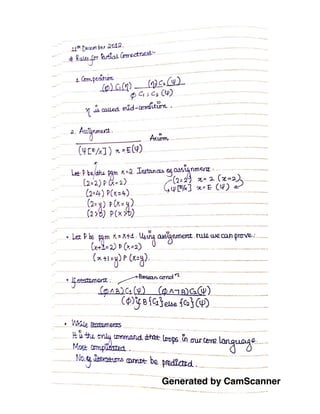 11th December 2012.
* Rules for Partial Correctness -
1. Composition
(ϕ) C₁ (η) (η) C₂ (ψ)
ϕ C₁ ; C₂ (ψ)
η is called mid-condition.
2. Assignment.
Axiom
(ψ[E/x]) x = E (ψ)
Let P be the pgm x=2. Instances of assignment.
(2=2) P (x=2) (2=2) x = 2 (x=2)
(2=4) P (x=4) (ψ[E/x] x = E (ψ)
(2=y) P (x=y)
(2>0) P (x>0)
• Let P be pgm x = x+1. Using assignment rule we can prove:
(x+1=2) P (x=2)
(x+1=y) P (x=y).
• If statement. Boolean
(ϕ∧B) C₁ (ψ) (ϕ∧¬B) C₂ (ψ)
(ϕ) if B {C₁} else {C₂} (ψ)
• While Statements
It is the only command that loops in our core language
Most complicated.
No. of iterations cannot be predicted.
Generated by CamScanner